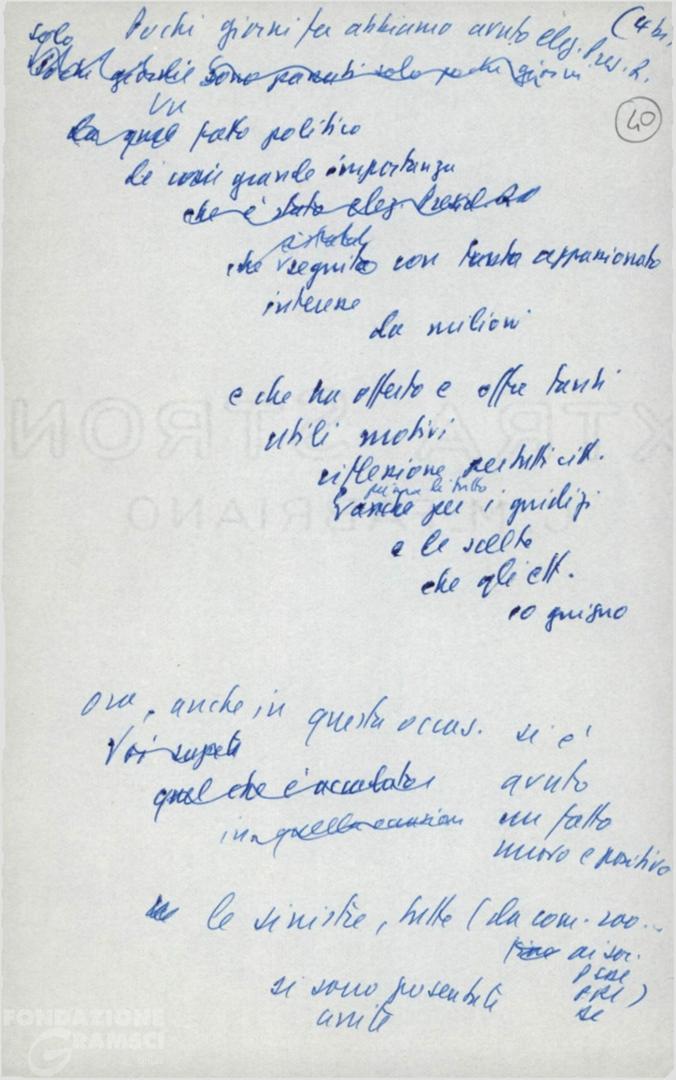 Pochi giorni fa abbiamo avuto elez. Pres. R.
(4 bi
solo
giorni sono passati solo pochi giorni
40
un
da quel fatto politico
di così grande importanza
che è stato elez. Presid.
è stato
che seguito con tanta appassionato
interesse
da milioni
e che ha offerto e offre tanti
utili motivi
riflessione per tutti citt.
prima di tutto
E anche per i giudizi
e le scelte
che gli ett.
20 giugno
ora, anche in questa occas. si è
Voi sapete
quel che è accaduto avuto
in quella occasione un fatto
nuovo e positivo
le sinistre, tutte (da com.
ai soc.
PSDI
PRI)
si sono presentate
unite
FONDAZIONE
GRAMSCI